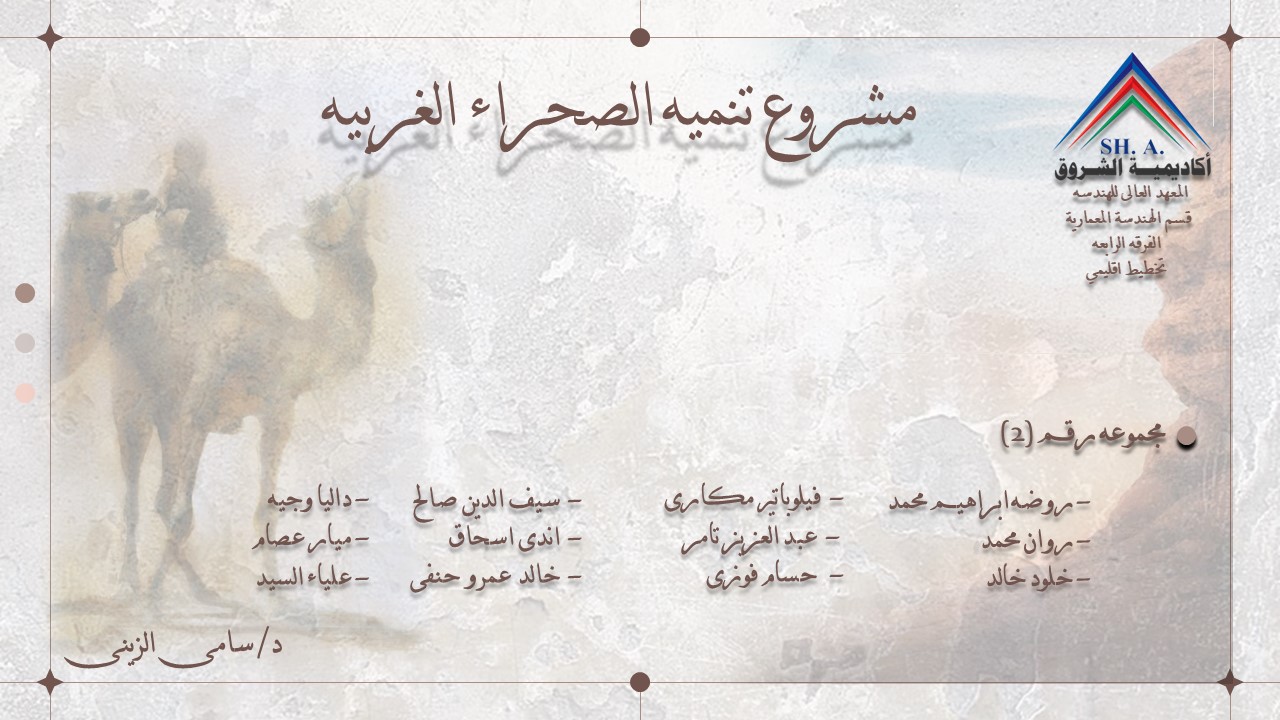 مشروع تنميه الصحراء الغربيه
SH. A.
أكاديمية الشروق
المعهد العالى للهندسه
قسم الهندسة المعمارية
الفرقه الرابعه
تخطيط اقليمي
مجموعه رقم (2)
-روضه ابراهيم محمد
-روان محمد
-خلود خالد
- فيلوباتير مكارى
- عبد العزيز تامر
- حسام فوزى
- سيف الدين صالح
- اندى اسحاق
- خالد عمرو حنفى
-داليا وجيه
-ميار عصام
-علياء السيد
د/سامى الزينى